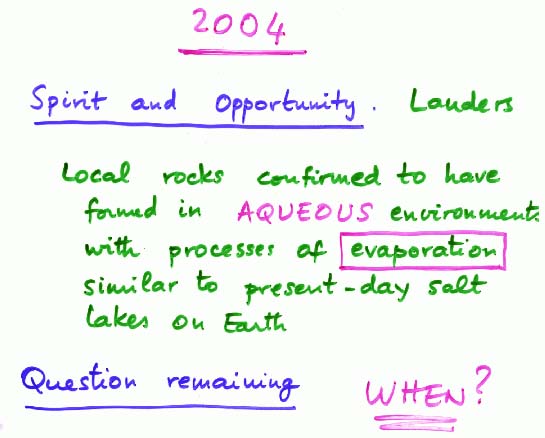 2004
Spirit and Opportunity. Landers
Local rocks confirmed to have
formed in AQUEOUS environments
with processes of evaporation
similar to present-day salt
lakes on Earth
Question remaining WHEN?